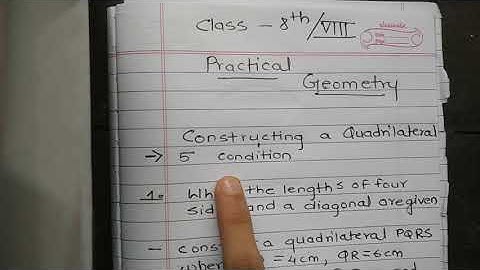 Class - 8th/VIII
Practical
Geometry
Constructing a Quadrilateral-
→ 5 condition
1. the lengths of four
and a diagonal are given
- a quadrilateral PQRS
= 4cm, QR = 6cm